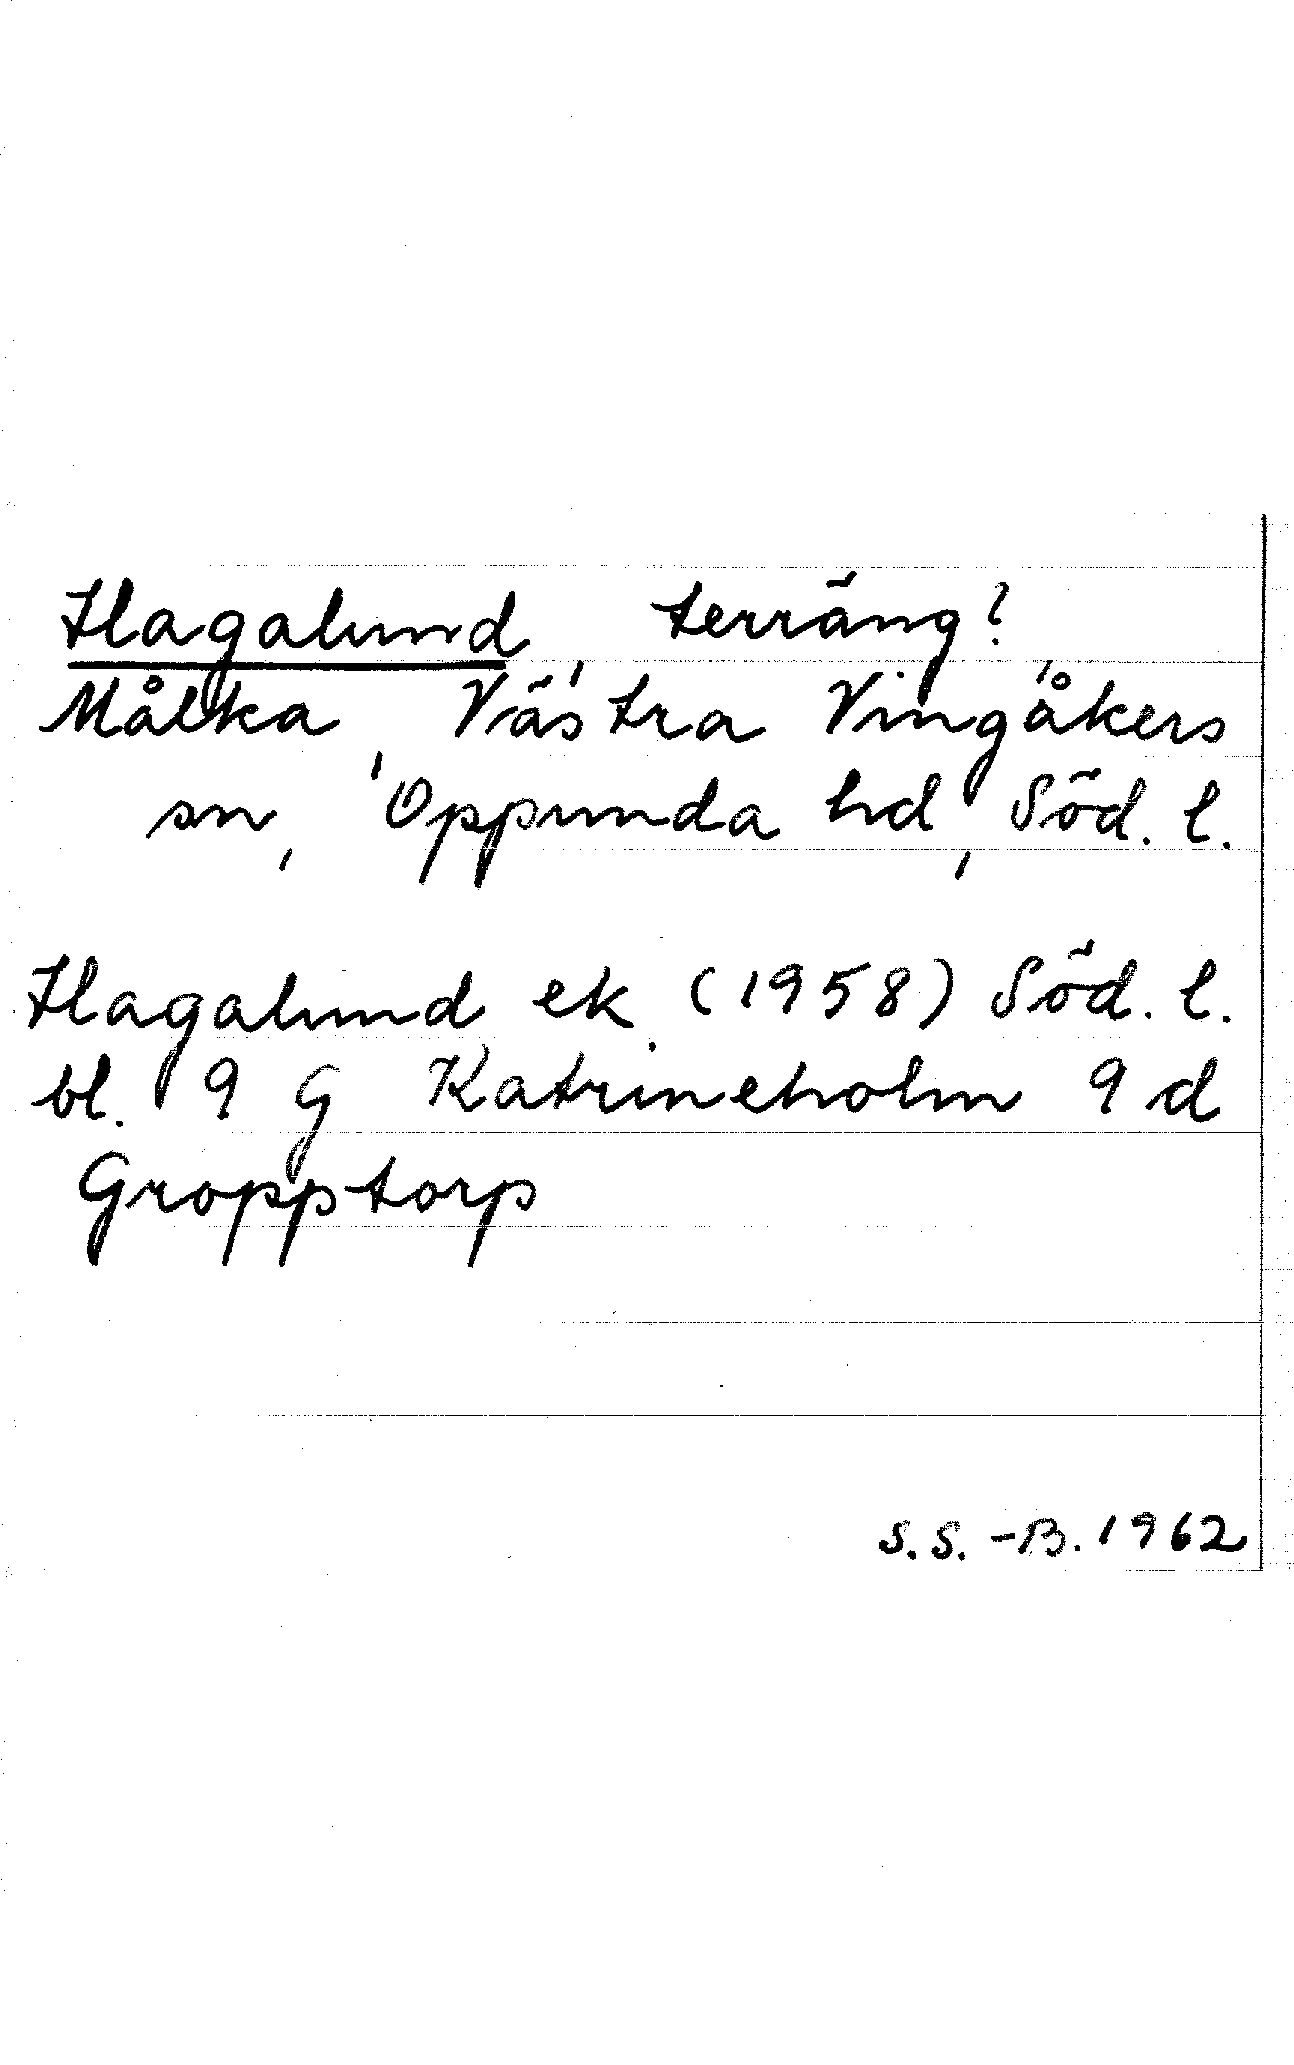 Hagalund, terräng?,
Målka, Västra Vingåkers
sn, Oppunda hd, Söd. l.
Hagalund ek. (1958) Söd. l.
bl. 9 G Katrineholm 9 d
Gropptorp
S.S.-B. 1962